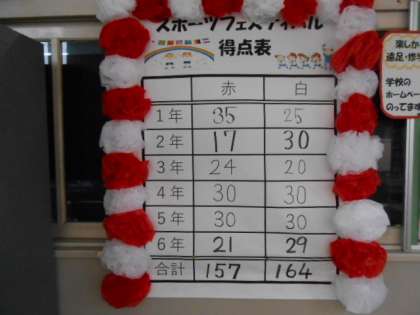 スポーツフェスティバル
得点表
赤 白
1年 35 25
2年 17 30
3年 24 20
4年 30 30
5年 30 30
6年 21 29
合計 157 164
楽しか
遠足・修
学校の
ホームペー
のってます